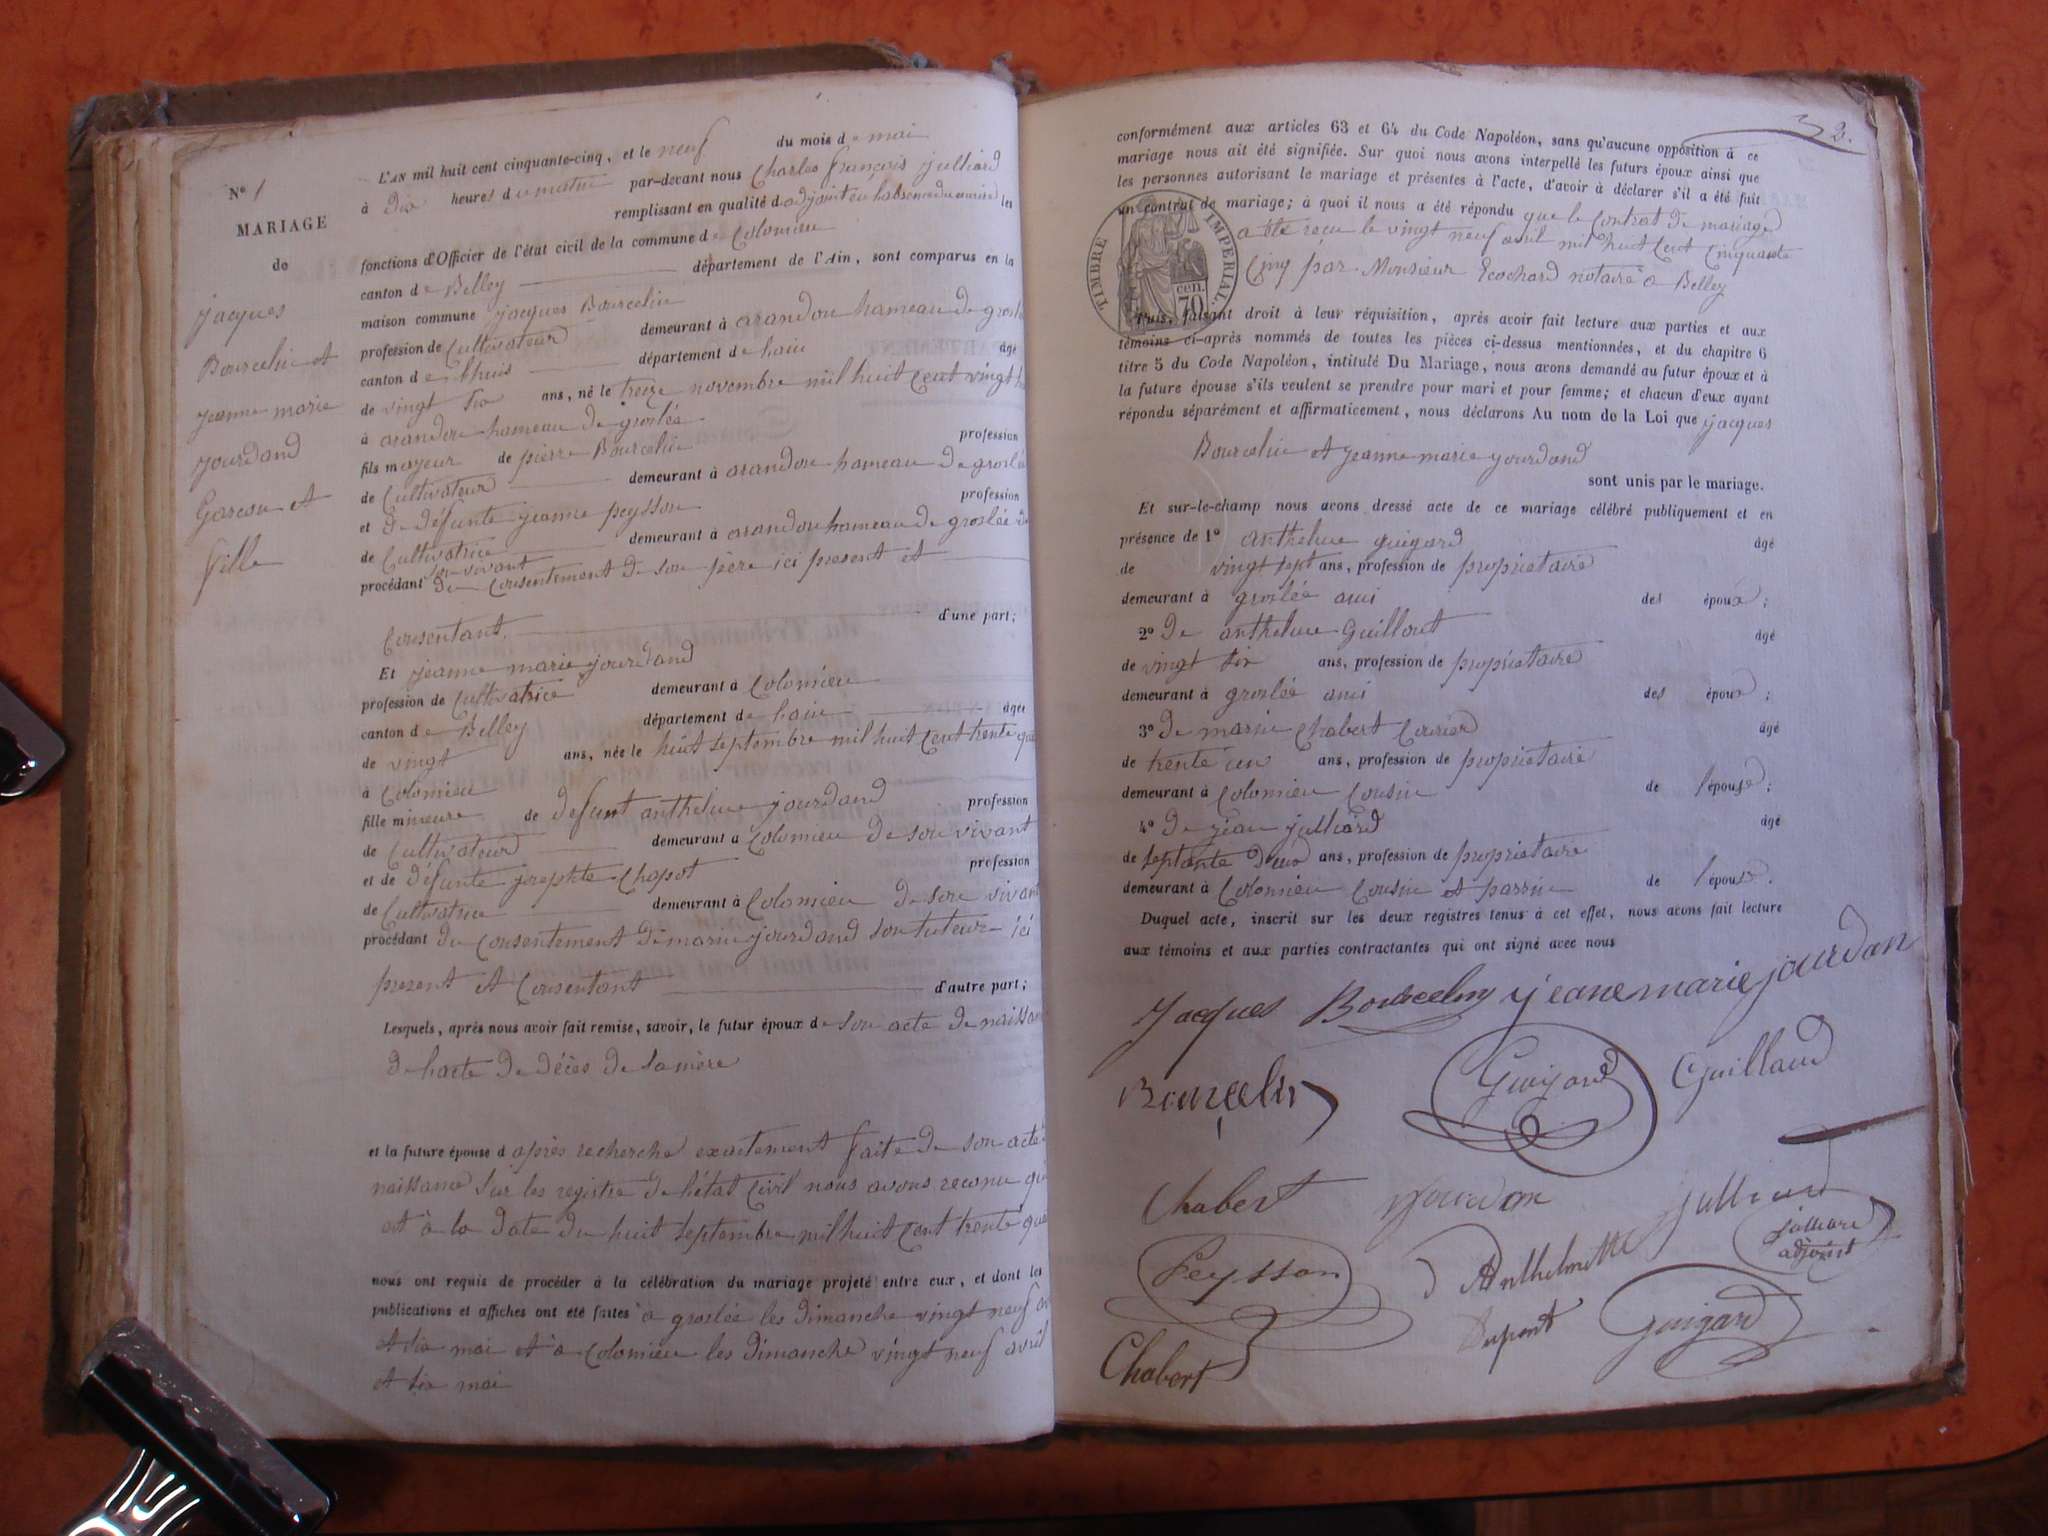 N° 1
MARIAGE
de
jacques
Bourcelin et
jeanne marie
jourdand
Garcon et
fille
L'AN mil huit cent cinquante-cinq, et le neuf du mois de mai
à dix heures du matin par-devant nous Charles françois julliard
remplissant en qualité d'adjoint en labsence du maire les
fonctions d'Officier de l'état civil de la commune de Colomieu
canton de Belley département de l'Ain, sont comparus en la
maison commune jacques Bourcelin
profession de Cultivateur demeurant à arandon hameau de groslé
canton de lhuis département de lain âgé
de vingt six ans, né le treize novembre mil huit cent vingt
à arandon hameau de groslée
fils mayeur de pierre Bourcelin profession
de Cultivateur demeurant à arandon hameau de groslée
et de défunte jeanne peysson profession
de Cultivatrice demeurant à arandon hameau de groslée de
son vivant
procédant du Consentement de son père ici present et
Consentant. d'une part;
Et jeanne marie jourdand
profession de Cultivatrice demeurant à Colomieu
canton de Belley département de lain âgée
de vingt ans, née le huit septembre mil huit Cent trente
à Colomieu
fille mineure de defunt anthelme jourdand profession
de Cultivateur demeurant à Colomieu de son vivant
et de défunte josephte Chapot profession
de Cultivatrice demeurant à Colomieu de son vivant
procédant du Consentement de marin jourdand son tuteur ici
present et Consentant d'autre part;
Lesquels, après nous avoir fait remise, savoir, le futur époux de son acte de naissan
de lacte de décès de sa mère
et la future épouse d après recherche exactement faite de son acte
naissance sur les registre de létat Civil nous avons reconu qu
est à la date du huit septembre mil huit Cent trente
nous ont requis de procéder à la célébration du mariage projeté entre eux, et dont les
publications et affiches ont été faites à groslée les dimanche vingt neuf
et six mai et à Colomieu les dimanche vingt neuf avril
et six mai
2.
conformément aux articles 63 et 64 du Code Napoléon, sans qu'aucune opposition à ce
mariage nous ait été signifiée. Sur quoi nous avons interpellé les futurs époux ainsi que
les personnes autorisant le mariage et présentes à l'acte, d'avoir à déclarer s'il a été fait
un contrat de mariage; à quoi il nous a été répondu que le Contrat de mariage
a été reçu le vingt neuf avril mil huit Cent Cinquante
Cinq par Monsieur Ecochard notaire à Belley
TIMBRE IMPÉRIAL.
70 cen.
Puis, faisant droit à leur réquisition, après avoir fait lecture aux parties et aux
témoins ci-après nommés de toutes les pièces ci-dessus mentionnées, et du chapitre 6
titre 5 du Code Napoléon, intitulé Du Mariage, nous avons demandé au futur époux et à
la future épouse s'ils veulent se prendre pour mari et pour femme; et chacun d'eux ayant
répondu séparément et affirmaticement, nous déclarons Au nom de la Loi que jacques
Bourcelin et jeanne marie jourdand
sont unis par le mariage.
Et sur-le-champ nous avons dressé acte de ce mariage célébré publiquement et en
présence de 1° anthelme guigard âgé
de vingt sept ans, profession de propriétaire
demeurant à groslée ami des époux;
2° de anthelme Guillout âgé
de vingt six ans, profession de propriétaire
demeurant à groslée ami des époux;
3° de marin Chabert âgé
de trente un ans, profession de propriétaire
demeurant à Colomieu Cousin de l'épouse;
4° de jean julliard âgé
de septante deux ans, profession de propriétaire
demeurant à Colomieu Cousin et parrin de l'épouse.
Duquel acte, inscrit sur les deux registres tenus à cet effet, nous avons fait lecture
aux témoins et aux parties contractantes qui ont signé avec nous
Jacques Bourcelin jeane marie jourdan
Bourcelin Guigard Guillaud
Chabert jourdan julliard
julliard
adjoint
Peysson Anthelmette
Dupont Guigard
Chabert